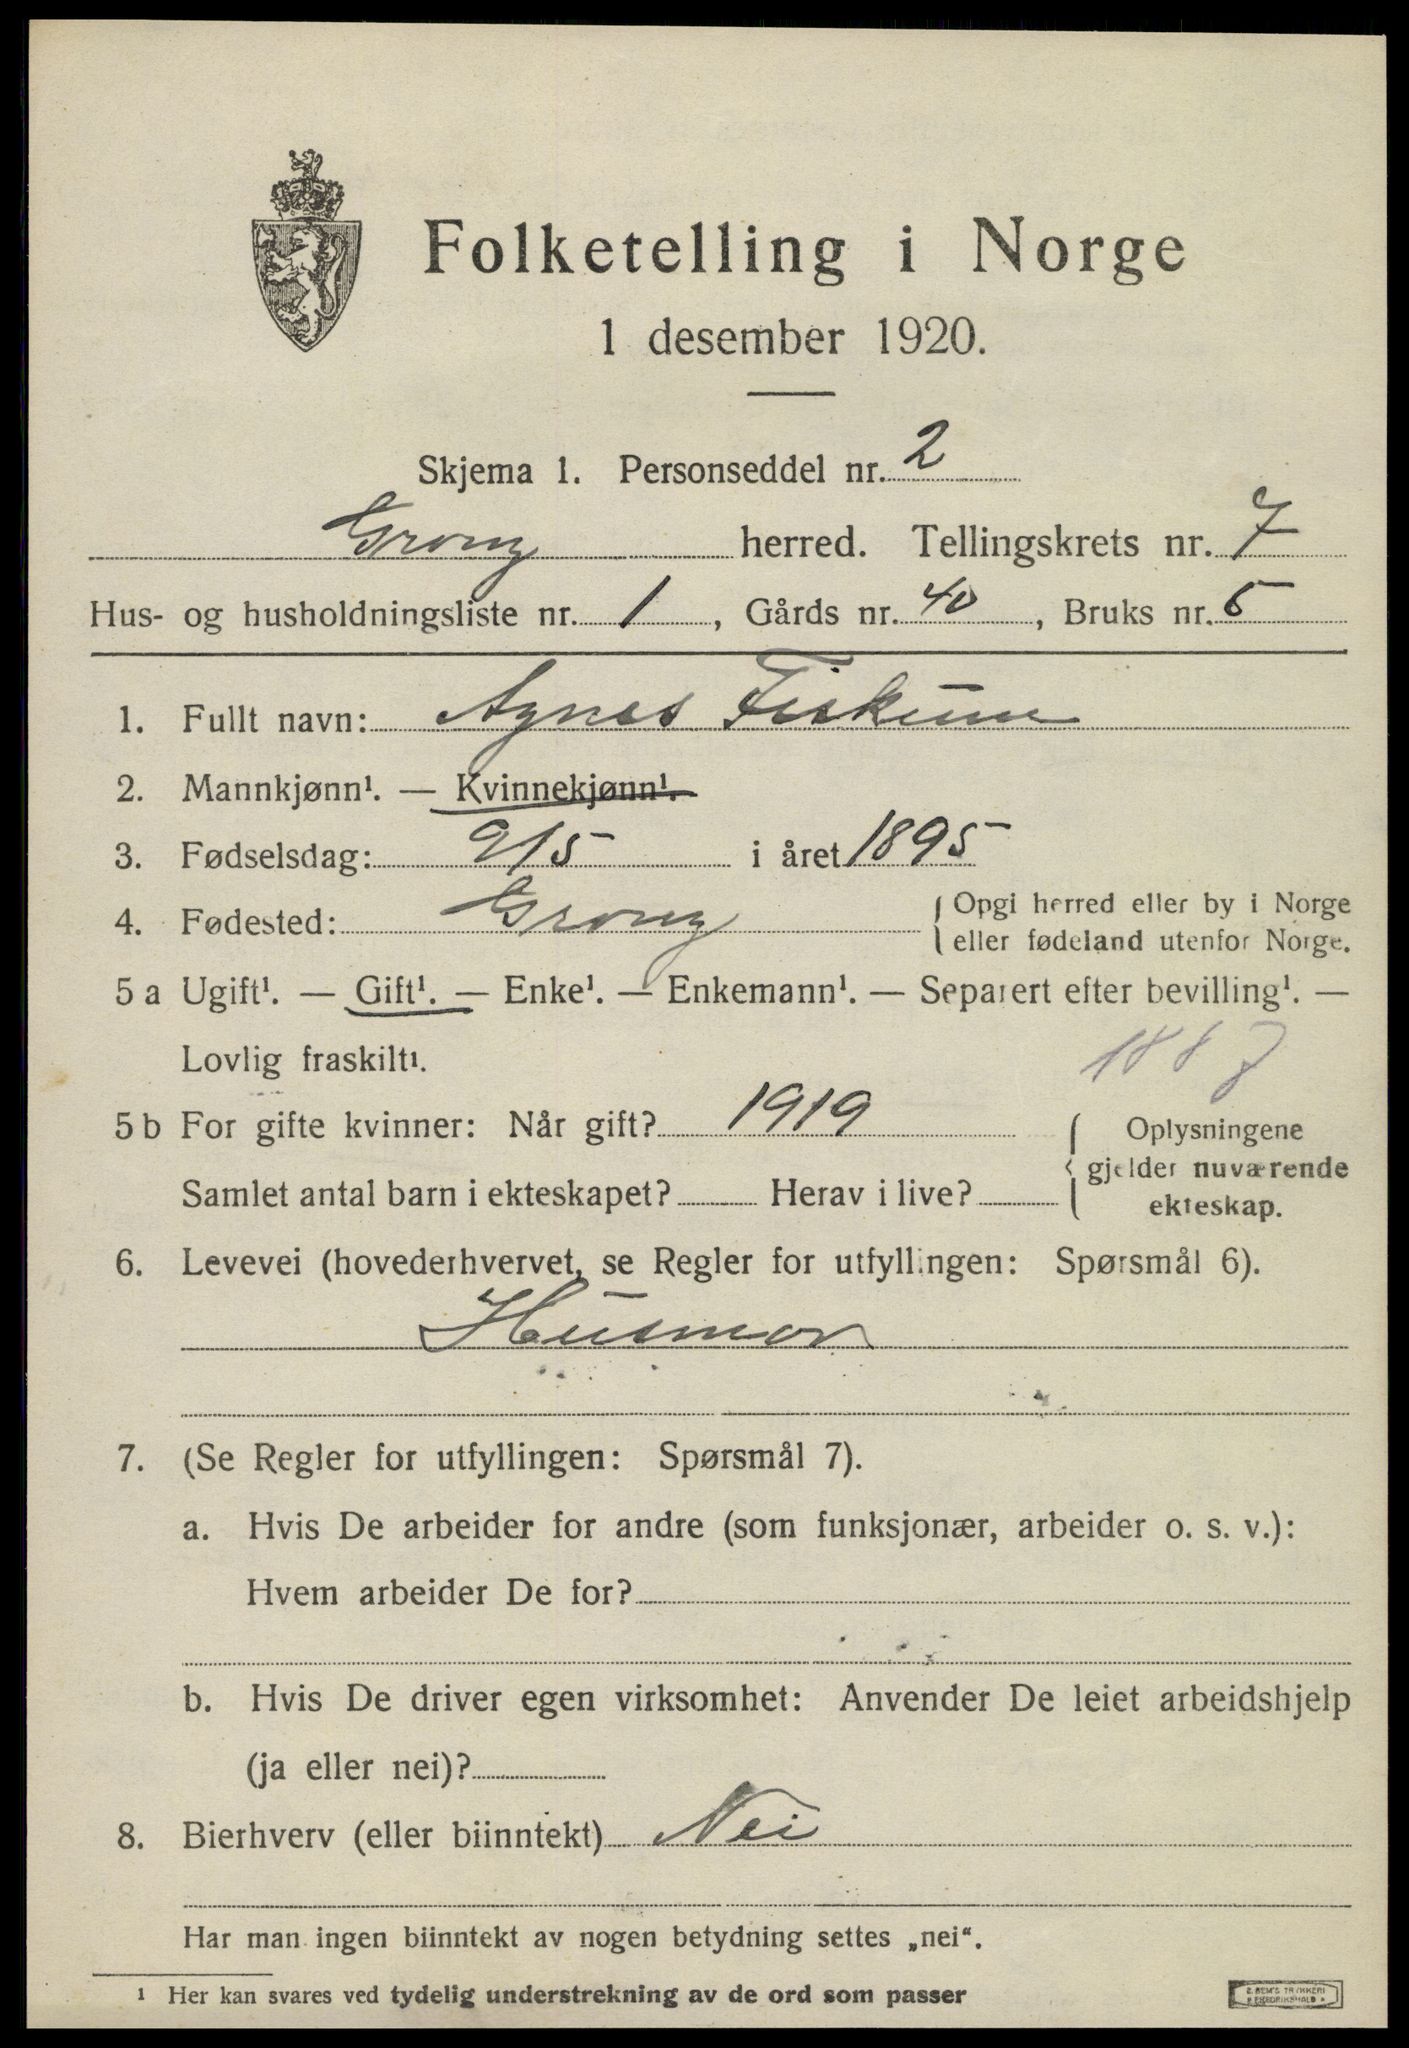 Folketelling i Norge
1 desember 1920.
Skjema 1. Personseddel nr. 2
Grong herred. Tellingskrets nr. 7
Hus- og husholdningsliste nr. 1, Gårds nr. 40, Bruks nr. 5
1. Fullt navn: Agnes Fiskum
2. Mannkjønn¹. — Kvinnekjønn¹.
3. Fødselsdag: 9/5 i året 1895
4. Fødested: Grong { Opgi herred eller by i Norge
eller fødeland utenfor Norge.
5 a Ugift¹. — Gift¹. — Enke¹. — Enkemann¹. — Separert efter bevilling¹. —
Lovlig fraskilt¹.
1887
5 b For gifte kvinner: Når gift? 1919
Samlet antal barn i ekteskapet? Herav i live?
{ Oplysningene
gjelder nuværende
ekteskap.
6. Levevei (hovederhvervet, se Regler for utfyllingen: Spørsmål 6).
Husmor
7. (Se Regler for utfyllingen: Spørsmål 7).
a. Hvis De arbeider for andre (som funksjonær, arbeider o. s. v.):
Hvem arbeider De for?
b. Hvis De driver egen virksomhet: Anvender De leiet arbeidshjelp
(ja eller nei)?
8. Bierhverv (eller biinntekt) Nei
Har man ingen biinntekt av nogen betydning settes „nei“.
¹ Her kan svares ved tydelig understrekning av de ord som passer